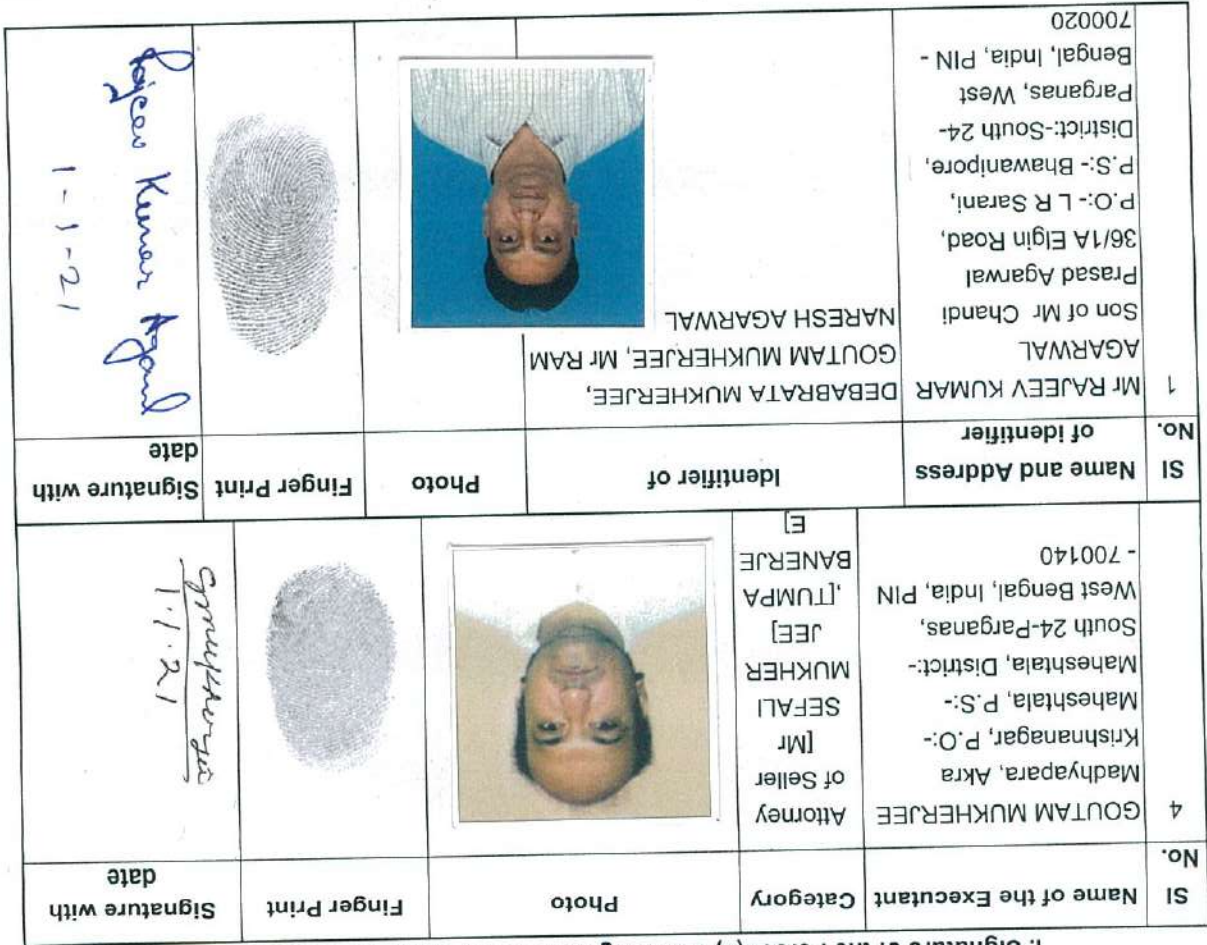 SI No.
Name of the Executant
Category
Photo
Finger Print
Signature with date
4
GOUTAM MUKHERJEE
Madhyapara, Akra
Krishnanagar, P.O:-
Maheshtala, P.S:-
Maheshtala, District:-
South 24-Parganas,
West Bengal, India, PIN
- 700140
Attorney
of Seller
[Mr
SEFALI
MUKHER
JEE]
,[TUMPA
BANERJE
E]
1.1.21
SI No.
Name and Address of identifier
Identifier of
Photo
Finger Print
Signature with date
1
Mr RAJEEV KUMAR
AGARWAL
Son of Mr Chandi
Prasad Agarwal
36/1A Elgin Road,
P.O:- L R Sarani,
P.S:- Bhawanipore,
District:-South 24-
Parganas, West
Bengal, India, PIN -
700020
DEBABRATA MUKHERJEE,
GOUTAM MUKHERJEE, Mr RAM
NARESH AGARWAL
Rajeev Kumar Agarwal
1-1-21